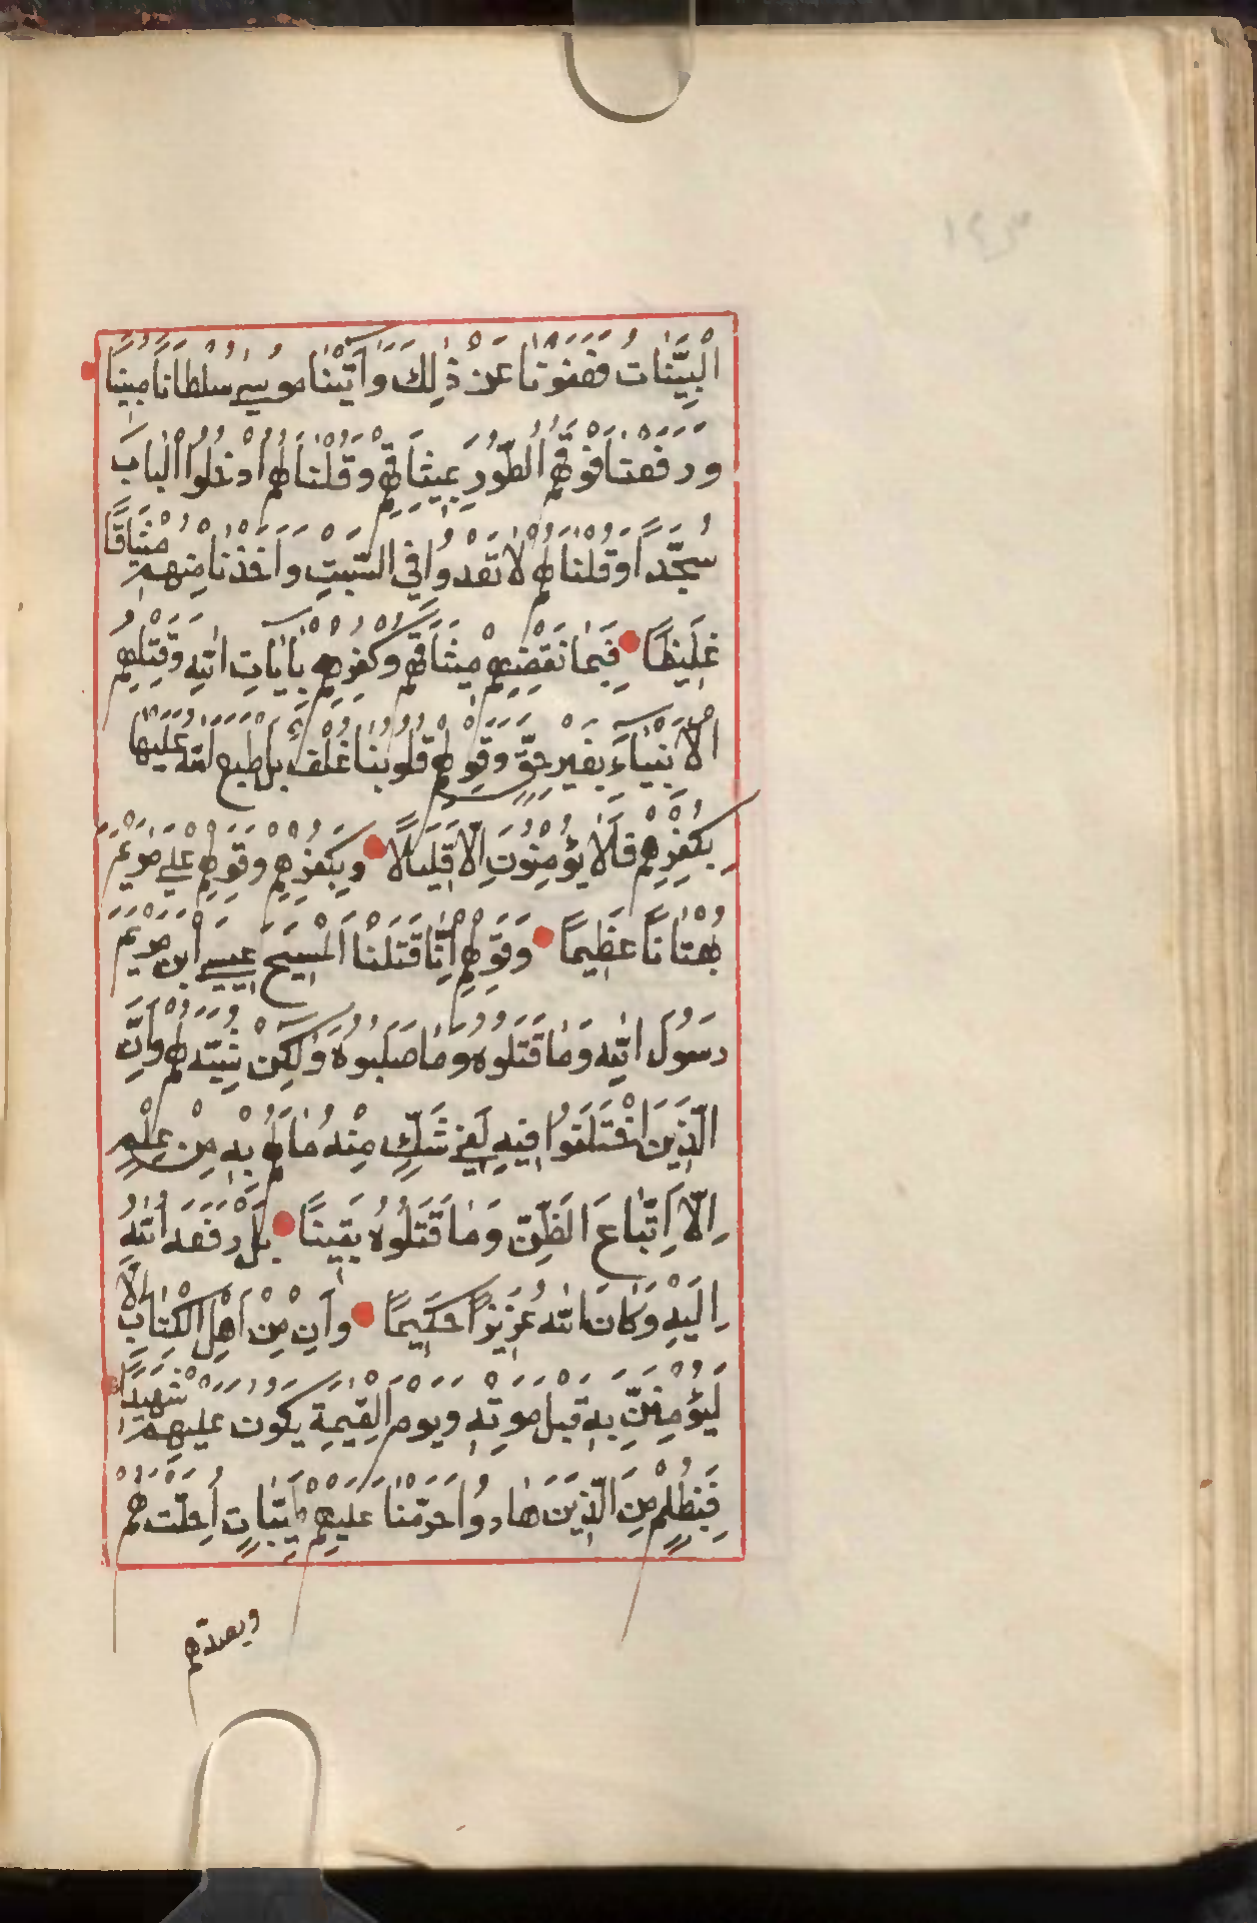 الْبَيِّنَاتُ فَعَفَوْنَا عَنْ ذٰلِكَ وَآتَيْنَا مُوسٰى سُلْطَانًا مُبِينًا
وَرَفَعْنَا فَوْقَهُمُ الطُّورَ بِمِيثَاقِهِمْ وَقُلْنَا لَهُمُ ادْخُلُوا الْبَابَ
سُجَّدًا وَقُلْنَا لَهُمْ لَا تَعْدُوا فِي السَّبْتِ وَأَخَذْنَا مِنْهُمْ مِيثَاقًا
غَلِيظًا فَبِمَا نَقْضِهِمْ مِيثَاقَهُمْ وَكُفْرِهِمْ بِآيَاتِ اللّٰهِ وَقَتْلِهِمُ
الْأَنْبِيَاءَ بِغَيْرِ حَقٍّ وَقَوْلِهِمْ قُلُوبُنَا غُلْفٌ بَلْ طَبَعَ اللّٰهُ عَلَيْهَا
بِكُفْرِهِمْ فَلَا يُؤْمِنُونَ اِلَّا قَلِيلًا وَبِكُفْرِهِمْ وَقَوْلِهِمْ عَلٰى مَرْيَمَ
بُهْتَانًا عَظِيمًا وَقَوْلِهِمْ اِنَّا قَتَلْنَا الْمَسِيحَ عِيسَى ابْنَ مَرْيَمَ
رَسُولَ اللّٰهِ وَمَا قَتَلُوهُ وَمَا صَلَبُوهُ وَلٰكِنْ شُبِّهَ لَهُمْ وَاِنَّ
الَّذِينَ اخْتَلَفُوا فِيهِ لَفِي شَكٍّ مِنْهُ مَا لَهُمْ بِهِ مِنْ عِلْمٍ
اِلَّا اتِّبَاعَ الظَّنِّ وَمَا قَتَلُوهُ يَقِينًا بَلْ رَفَعَهُ اللّٰهُ
اِلَيْهِ وَكَانَ اللّٰهُ عَزِيزًا حَكِيمًا وَاِنْ مِنْ اَهْلِ الْكِتَابِ اِلَّا
لَيُؤْمِنَنَّ بِهِ قَبْلَ مَوْتِهِ وَيَوْمَ الْقِيٰمَةِ يَكُونُ عَلَيْهِمْ شَهِيدًا
فَبِظُلْمٍ مِنَ الَّذِينَ هَادُوا حَرَّمْنَا عَلَيْهِمْ طَيِّبَاتٍ اُحِلَّتْ لَهُمْ
وبصدهم